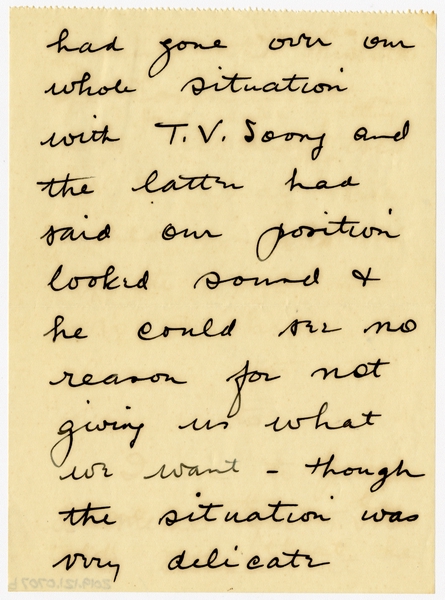 had gone over our
whole situation
with T.V. Soong and
the latter had
said our position
looked sound &
he could see no
reason for not
giving us what
we want - though
the situation was
very delicate